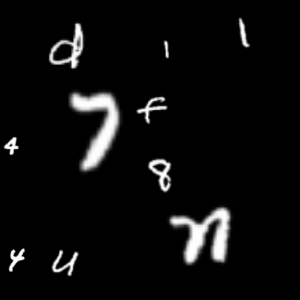 d 1 1
7 f
4
8
n
4 u